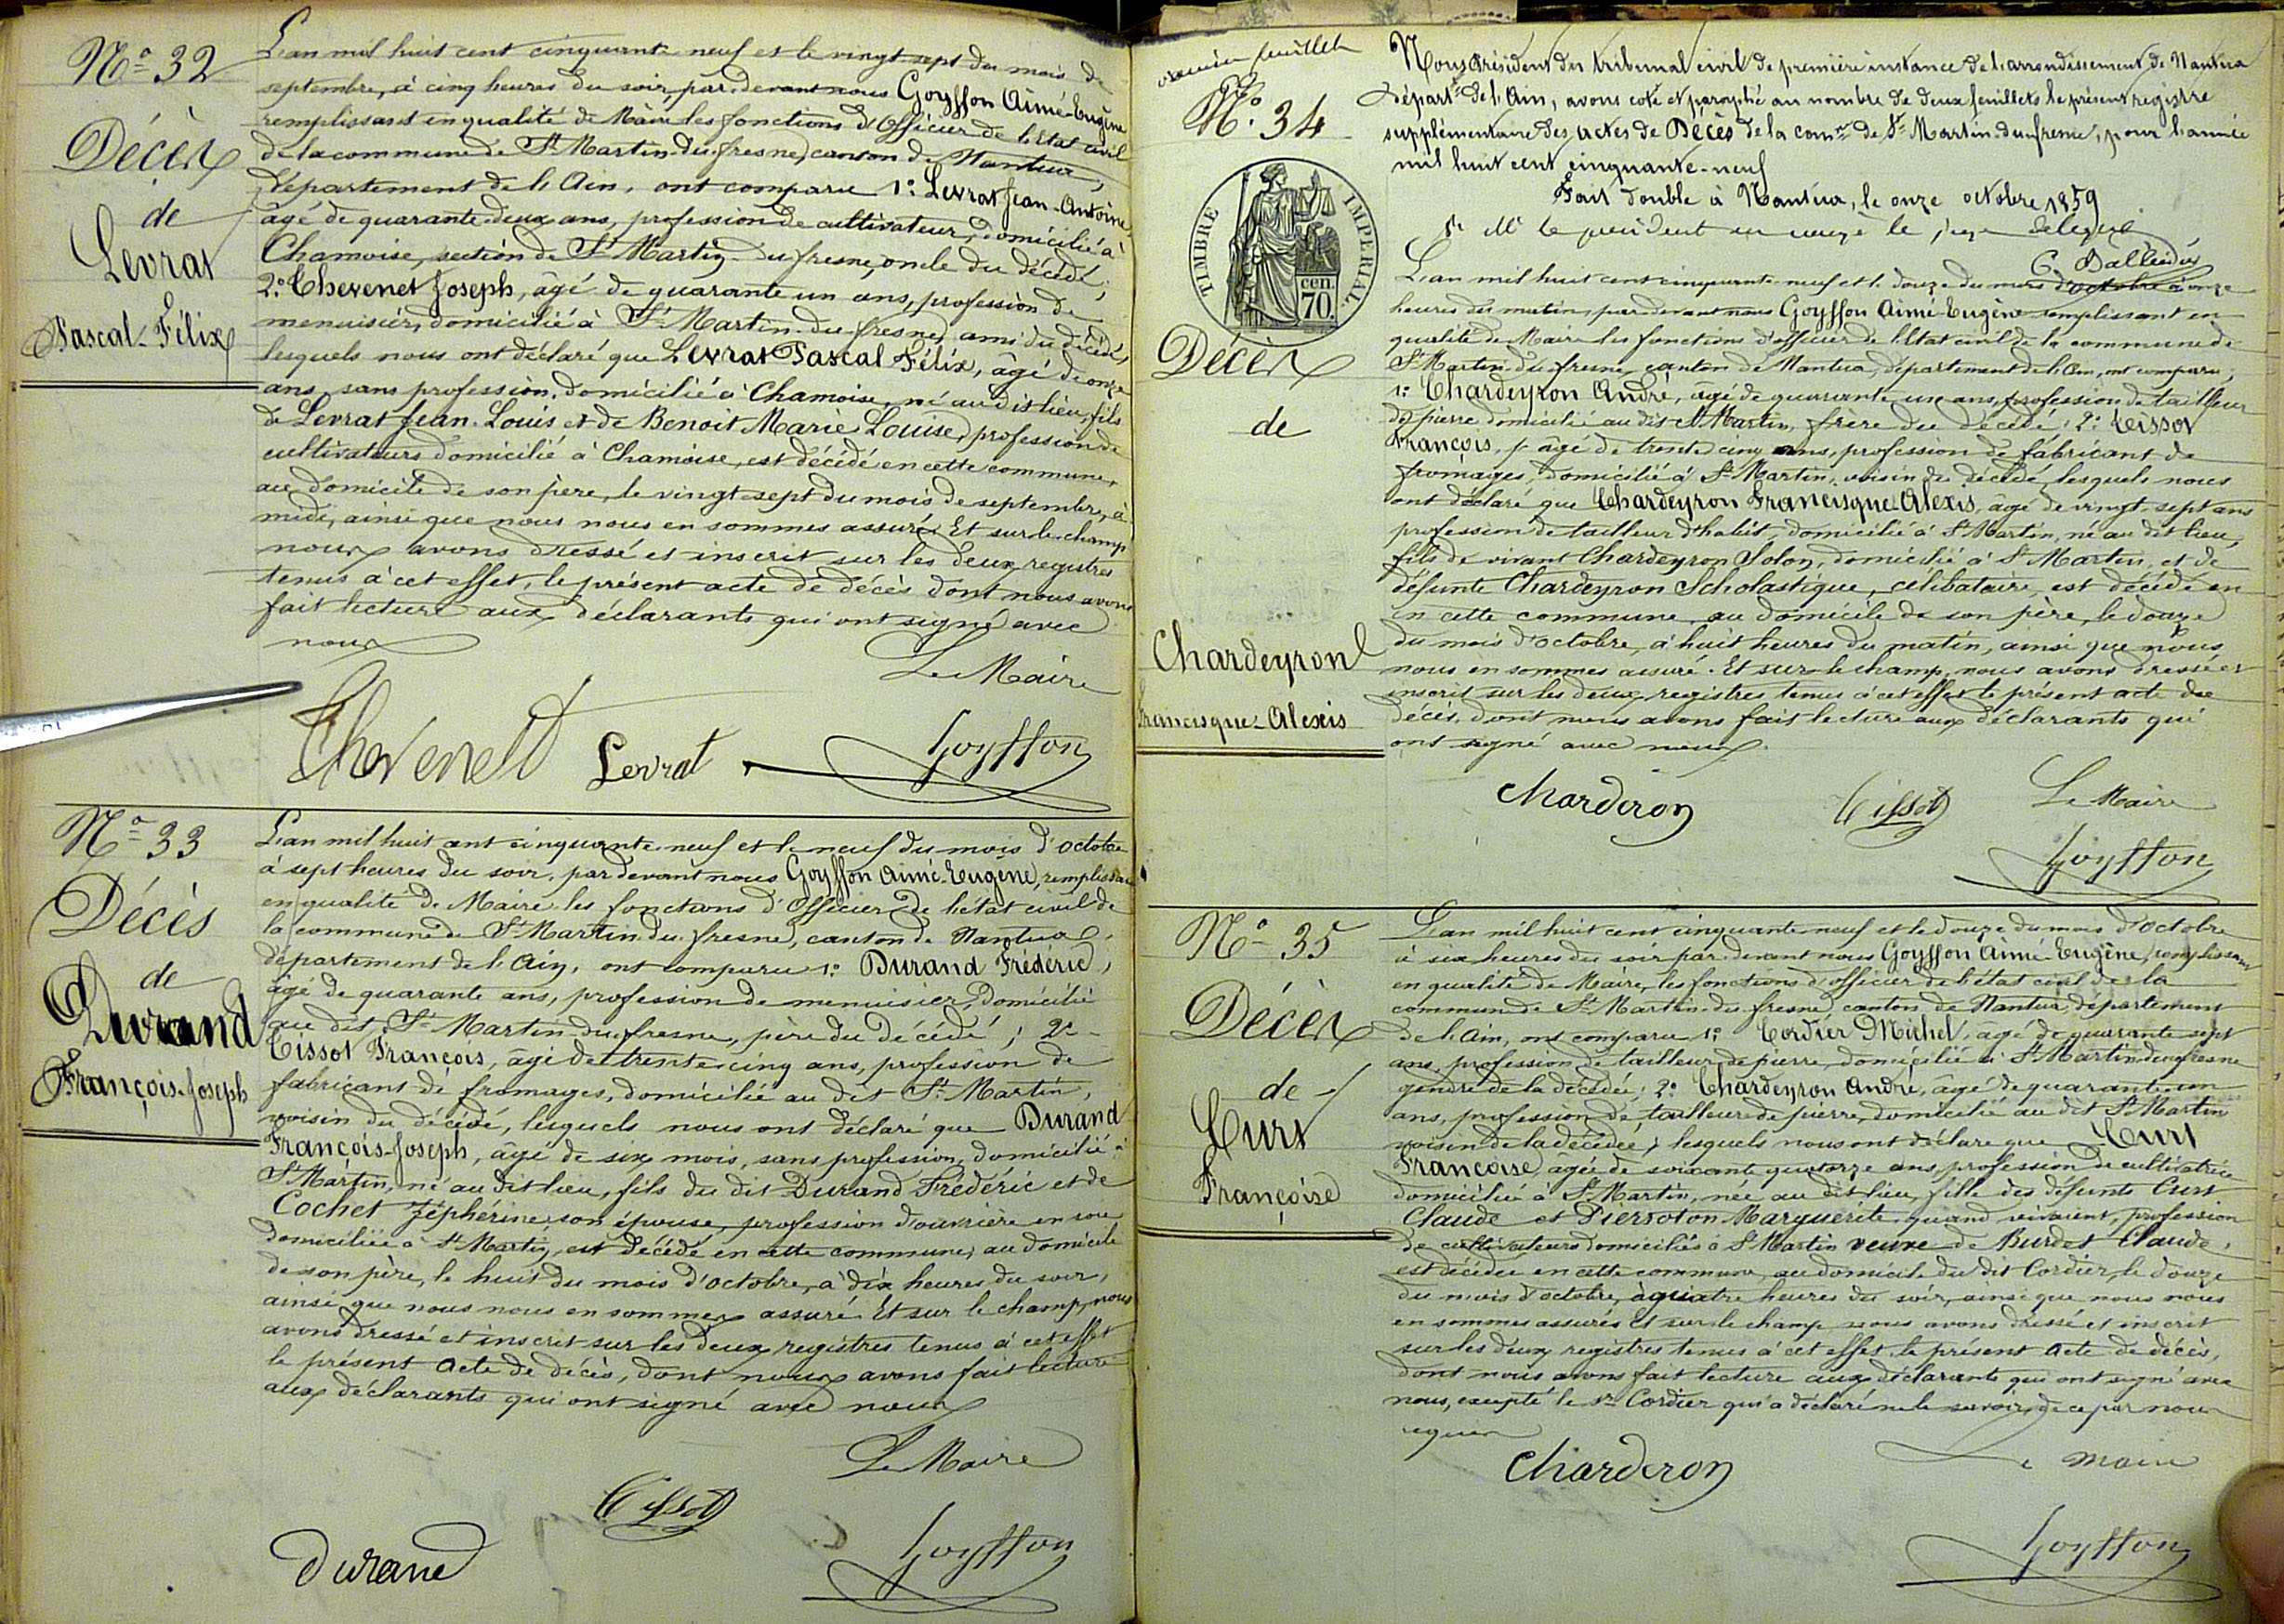 N.º 32
Décès
de
Levrat
Pascal-Félix
L'an mil huit cent cinquante neuf et le vingt sept du mois de
septembre, à cinq heures du soir, par devant nous Goyffon Aimé-Eugène
remplissant en qualité de Maire les fonctions d'Officier de l'Etat civil
de la commune de St Martin-du-fresne, canton de Nantua,
département de l'Ain, ont comparu 1º Levrat Jean-Antoine,
âgé de quarante-deux ans, profession de cultivateur, domicilié à
Chamoise, section de St Martin-du-fresne, oncle du décédé;
2º Chevenet Joseph, âgé de quarante un ans, profession de
menuisier, domicilié à St Martin-du-fresne, ami du décédé,
lesquels nous ont déclaré que Levrat Pascal Félix, âgé de onze
ans, sans profession, domicilié à Chamoise, né au dit lieu, fils
de Levrat Jean-Louis et de Benoit Marie Louise, profession de
cultivateurs domicilié à Chamoise, est décédé en cette commune,
au domicile de son père, le vingt-sept du mois de septembre, à
midi, ainsi que nous nous en sommes assuré. Et sur le champ
nous avons dressé et inscrit sur les deux registres
tenus à cet effet, le présent acte de décès dont nous avons
fait lecture aux déclarants qui ont signé avec
nous
Le Maire
Chevenet Levrat Goyffon
Nº 33
Décès
de
Durand
François-Joseph
L'an mil huit cent cinquante-neuf et le neuf du mois d'octobre
à sept heures du soir, par devant nous Goyffon Aimé-Eugène, remplissant
en qualité de Maire les fonctions d'Officier de l'état civil de
la commune de St Martin-du-fresne, canton de Nantua,
département de l'Ain, ont comparu 1º Durand Fréderic,
âgé de quarante ans, profession de menuisier, domicilié
au dit St Martin-du-fresne, père du décédé; 2º
Tissot François, âgé de trente cinq ans, profession de
fabricant de fromages, domicilié au dit St Martin,
voisin du décédé, lesquels nous ont déclaré que Durand
François-Joseph, âgé de six mois, sans profession, domicilié à
St Martin, né au dit lieu, fils du dit Durand Frédéric et de
Cochet Zéphérine son épouse, profession d'ouvrière en soie
domiciliée à St Martin, est décédé en cette commune, au domicile
de son père, le huit du mois d'octobre, à dix heures du soir,
ainsi que nous nous en sommes assuré. Et sur le champ, nous
avons dressé et inscrit sur les deux registres tenus à cet effet
le présent acte de décès, dont nous avons fait lecture
aux déclarants qui ont signé avec nous
Le Maire
Tissot
Durand Goyffon
premier feuillet
Nº 34
TIMBRE IMPERIAL
cen. 70.
Décès
de
Chardeyron
Francisque-Alexis
Nous Président du tribunal civil de première instance de l'arrondissement de Nantua
départt de l'Ain, avons coté et paraphé au nombre de deux feuillets le présent registre
supplémentaire des actes de Décès de la comne de St Martin-du-fresne, pour l'année
mil huit cent cinquante-neuf
Fait double à Nantua, le onze octobre 1859
Pr Mr le président en congé le juge délégué
L'an mil huit cent cinquante neuf et le douze du mois d'octobre à onze
heures du matin, par devant nous Goyffon Aimé-Eugène remplissant en
qualité de Maire les fonctions d'officier de l'Etat civil de la commune de
St Martin-du-fresne, canton de Nantua, département de l'Ain, ont comparu,
1º Chardeyron André, âgé de quarante un ans, profession de tailleur
de pierre domicilié au dit St Martin, frère du décédé; 2º Tissot
François, âgé de trente cinq ans, profession de fabricant de
fromages, domicilié à St Martin, voisin du décédé, lesquels nous
ont déclaré que Chardeyron Francisque-Alexis, âgé de vingt-sept ans
profession de tailleur d'habits, domicilié à St Martin, né au dit lieu,
fils de vivant Chardeyron Solon, domicilié à St Martin, et de
défunte Chardeyron Scholastique, célibataire, est décédé en
en cette commune, au domicile de son père, le douze
du mois d'octobre, à huit heures du matin, ainsi que nous
nous en sommes assuré. Et sur le champ, nous avons dressé et
inscrit sur les deux registres tenus à cet effet le présent acte de
décès, dont nous avons fait lecture aux déclarants qui
ont signé avec nous.
Charderon Tissot Le Maire
Goyffon
Nº 35
Décès
de
Curt
Françoise
L'an mil huit cent cinquante neuf et le douze du mois d'octobre
à six heures du soir par devant nous Goyffon Aimé-Eugène, remplissant
en qualité de Maire, les fonctions d'officier de l'état civil de la
commune de St Martin-du-fresne, canton de Nantua, département
de l'Ain, ont comparu 1º Cordier Michel, âgé de quarante sept
ans, profession de tailleur de pierre, domicilié à St Martin-du-fresne
gendre de la décédée; 2º Chardeyron André, âgé de quarante-un
ans, profession de tailleur de pierre, domicilié au dit St Martin
voisin de la décédée; lesquels nous ont déclaré que Curt
Françoise, âgée de soixante quatorze ans, profession de cultivatrice
domiciliée à St Martin, née au dit lieu, fille des défunts Curt
Claude et Piersoton Marguerite, quand vivaient, profession
de cultivateurs domiciliés à St Martin veuve de Burdet Claude,
est décédée en cette commune, au domicile du dit Cordier, le douze
du mois d'octobre, à quatre heures du soir, ainsi que nous nous
en sommes assurés. Et sur le champ nous avons dressé et inscrit
sur les deux registres tenus à cet effet le présent acte de décès,
dont nous avons fait lecture aux déclarants qui ont signé avec
nous, excepté le sr Cordier qui a déclaré ne le savoir, de ce par nous
requis
Charderon Le Maire
Goyffon